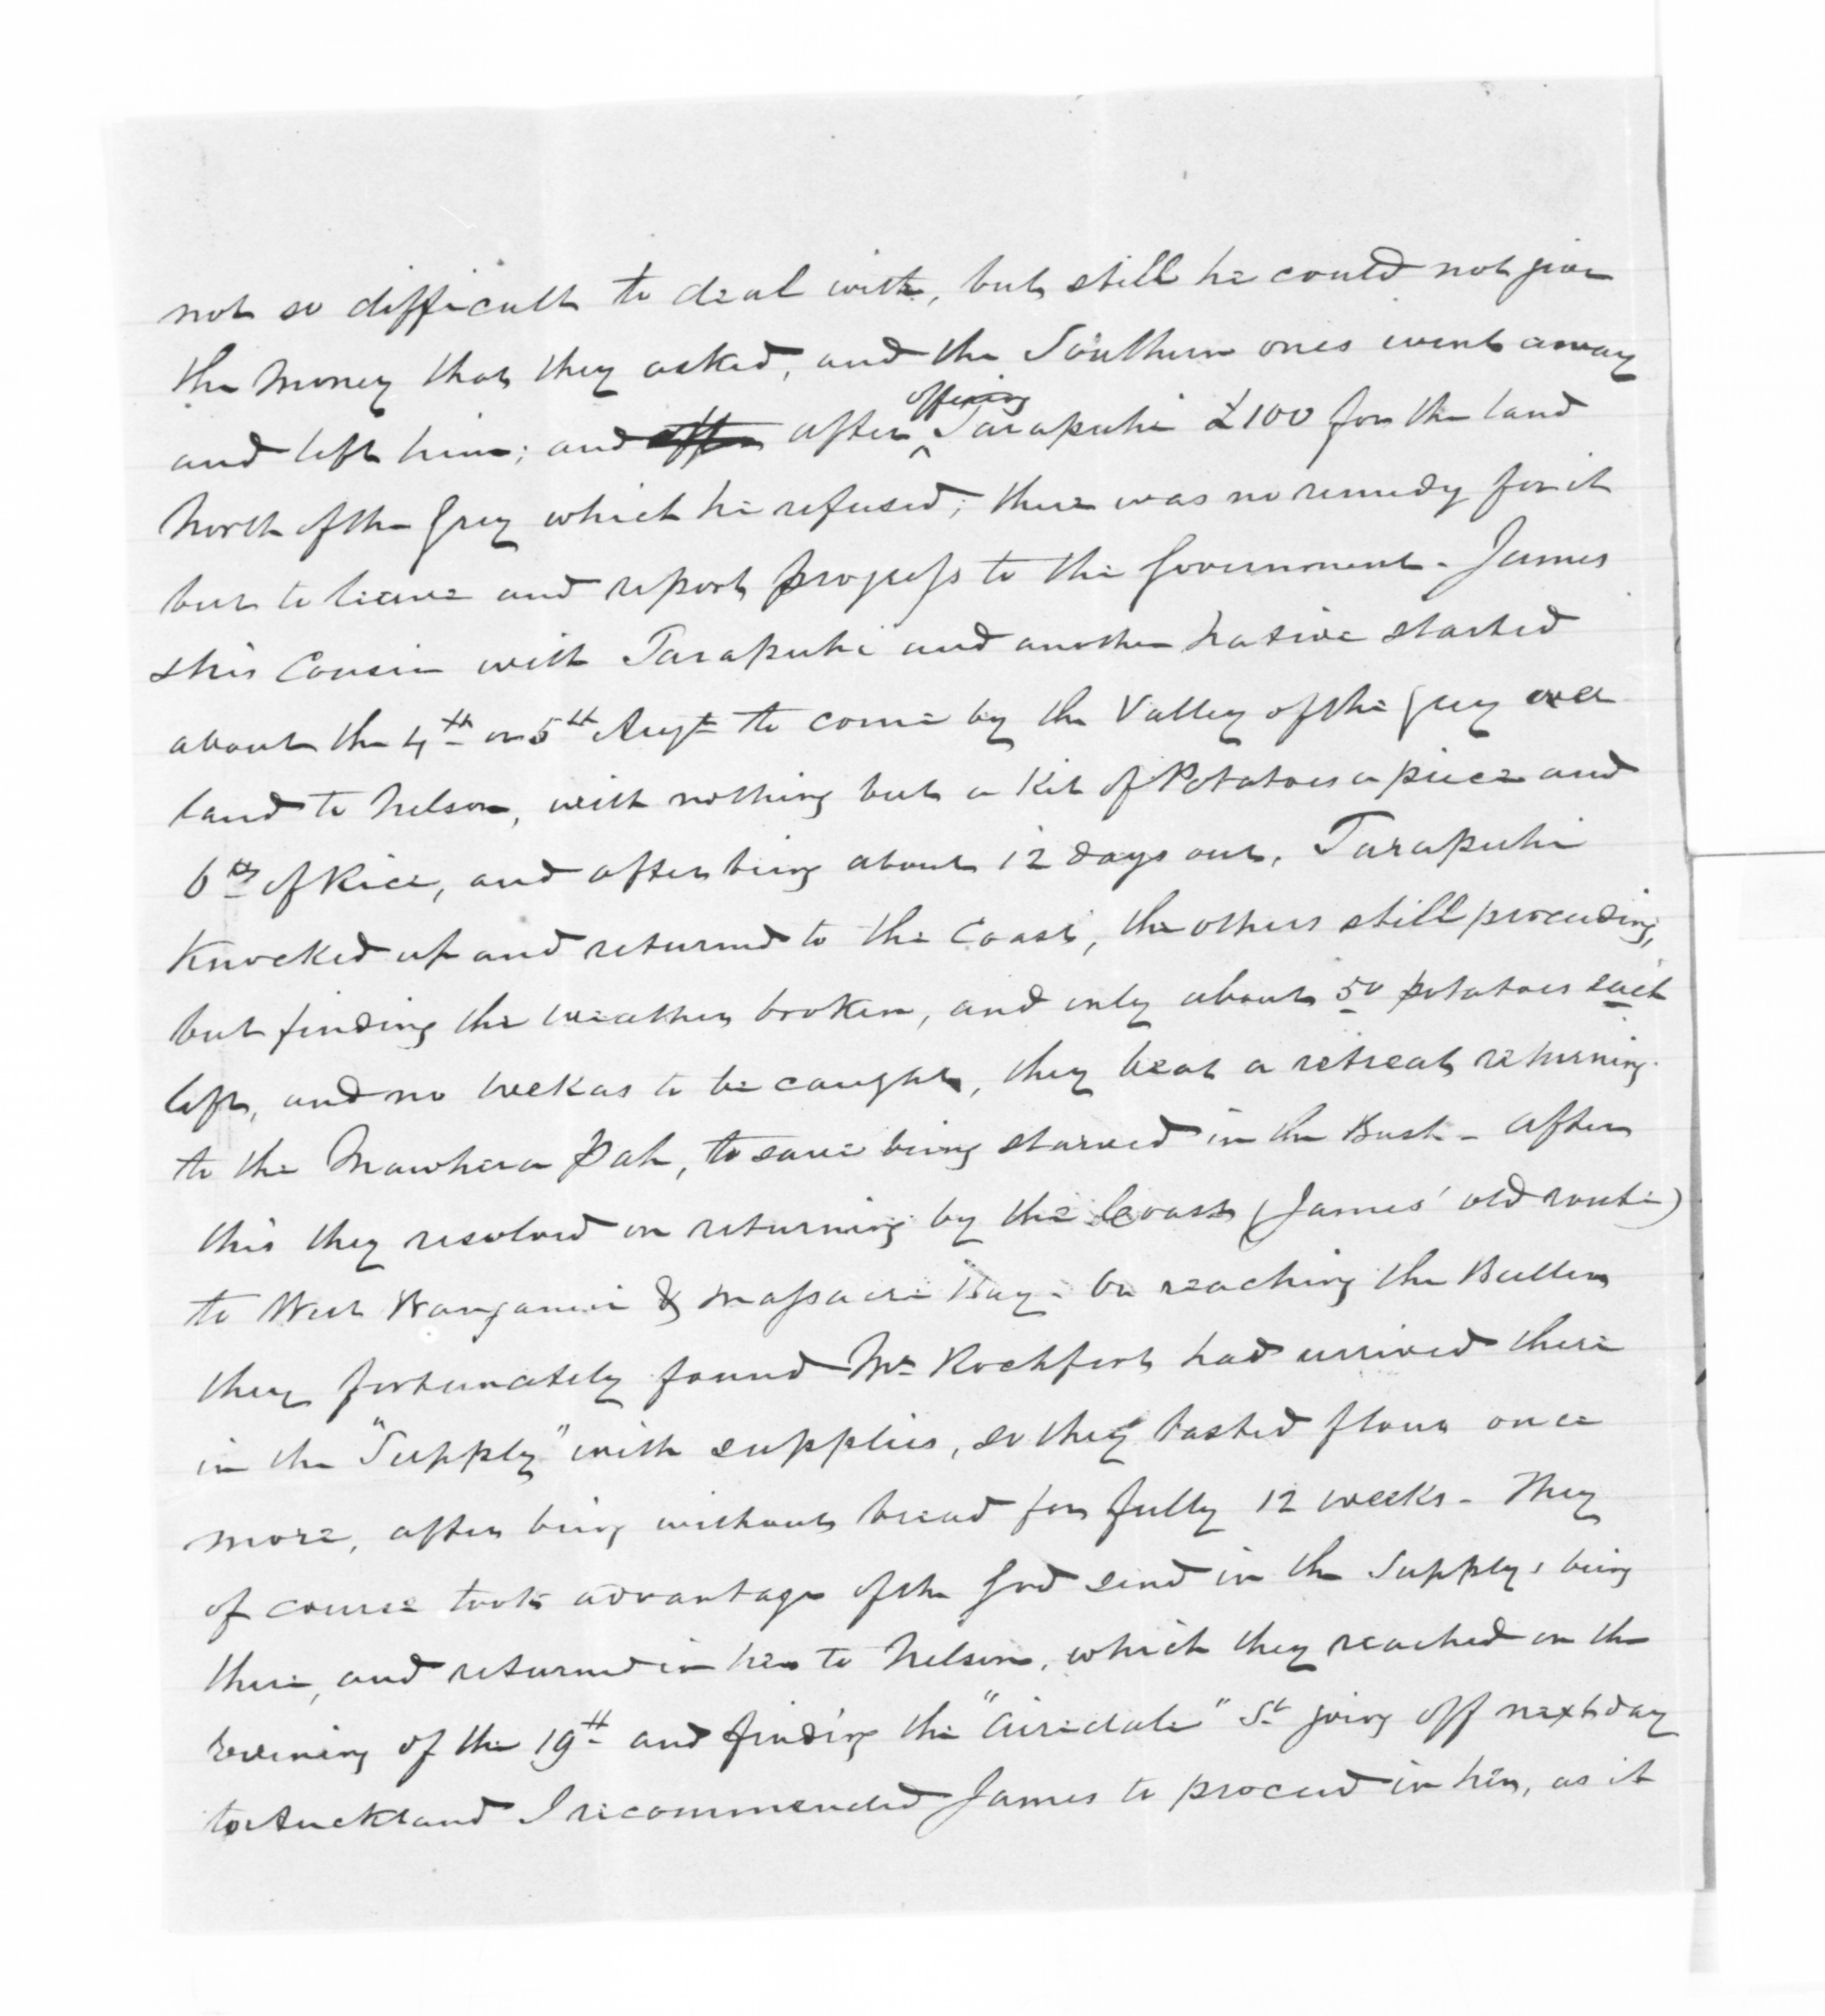 not so difficult to deal with, but still he could not give
the money that they asked, and the Southern ones went away
and left him; and after after offering Tarapuhi £100 for the land
North of the Grey which he refused; there was no remedy for it
but to leave and report progress to the Government. James
& his Cousin with Tarapuhi and another Native started
about the 4th or 5th Augt to come by the Valley of the Grey over
land to Nelson, with nothing but a Kit of Potatoes a piece and
6 lbs of Rice, and after being about 12 days out, Tarapuhi
Knocked up and returned to the Coast, the others still proceeding,
but finding the weather broken, and only about 50 potatoes each
left, and no wekas to be caught, they beat a retreat returning
to the Mawhera Pah, to save being starved in the Bush - after
this they resolved on returning by the Coast (James' old route)
to West Wanganui & Massacre Bay - On reaching the Buller
they fortunately found Mr Rochfort had arrived there
in the "Supply" with supplies, so they tasted flour once
more, after being without bread for fully 12 weeks - They
of course took advantage of the God send in the Supply's being
there, and returned in her to Nelson, which they reached on the
evening of the 19th and finding the "Airedale" St going off next day
to Auckland I recommended James to proceed in her, as it